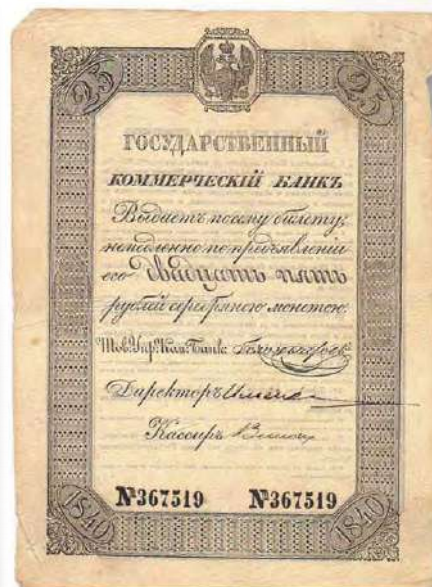 25 25
ГОСУДАРСТВЕННЫЙ
КОММЕРЧЕСКІЙ БАНКЪ
Выдаетъ по сему билету,
немедленно по предъявленіи
его двадцать пять
рублей серебряною монетою.
Тов. Упр. Ком. Банка
Директоръ
Кассиръ
№367519 №367519
1840 1840